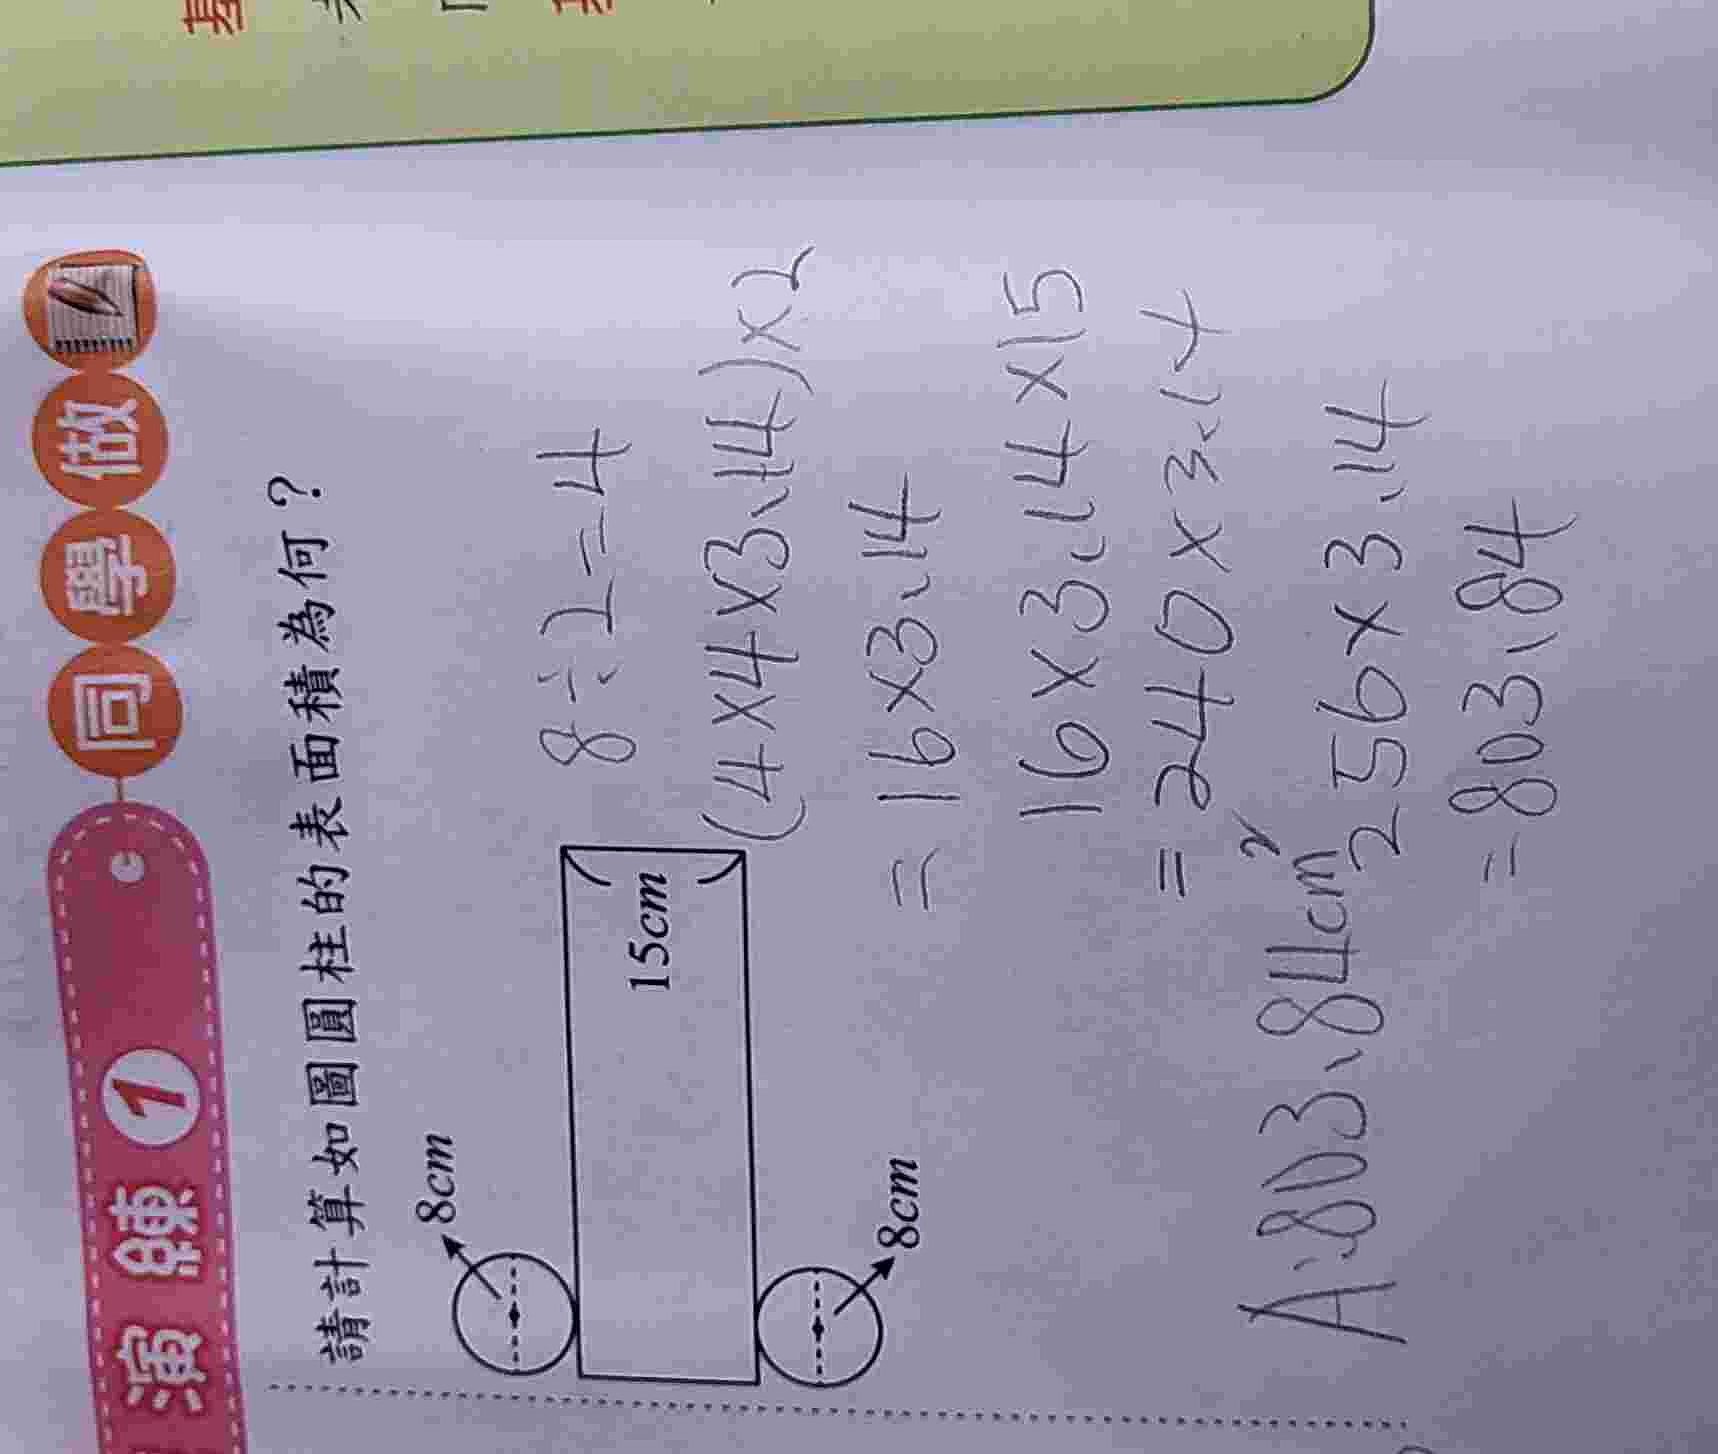 演練 1 同學做
請計算如圖圓柱的表面積為何？
8cm
15cm
8cm
8÷2=4
(4×4×3.14)×2
=16×3.14
16×3.14×15
=240×3.14
256×3.14
=803.84
A:803.84cm²